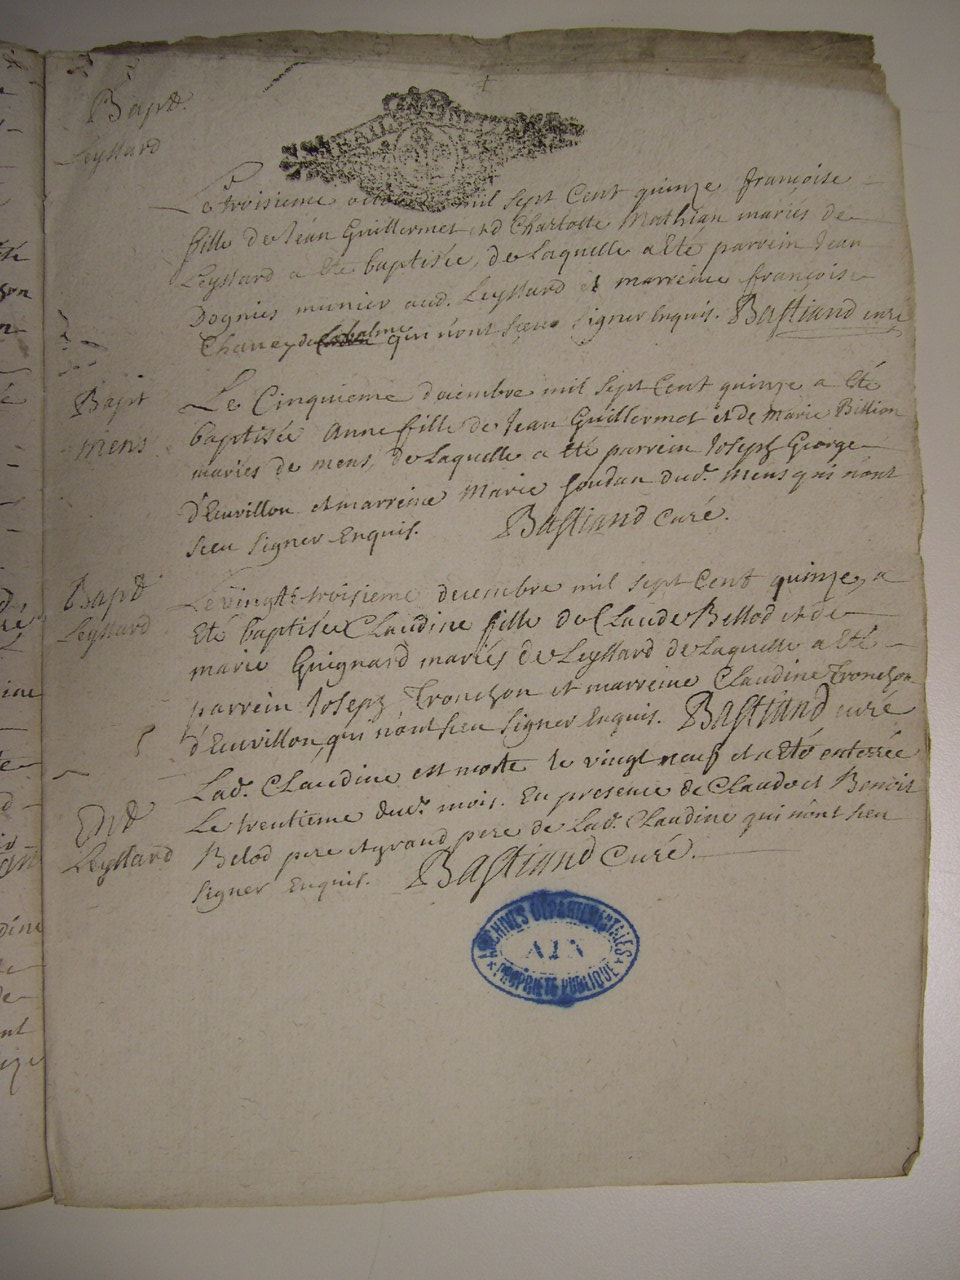 Bapt.
Leyssard
Le troisieme mil sept Cent quinze françoise
fille de Jean Guillermet et d Charlotte Mathian mariés de
Leyssard a été baptisée, de laquelle a été parrein Jean
Dognies munier aud. Leyssard et marreine françoise
Chaney de qui n'ont sceu signer Enquis. Bastiand curé
Bapt
mens
Le Cinquieme decembre mil sept Cent quinze a été
baptisée Anne fille de Jean Guillermet et de Marie Billion
mariés de mens, de laquelle a été parrein Joseph George
d'Euvillon et marreine Marie Goudan dud. Mens qui n'ont
sceu signer Enquis. Bastiand Curé.
Bapt.
Leyssard
Le vingt-troisieme decembre mil sept Cent quinze, a
Eté baptisée Claudine fille de Claude Bellod et de
marie Guignard mariés de Leyssard de laquelle a eté
parrein Joseph Tronchon et marreine Claudine Tronchon
d'Euvillon, qui n'ont sceu signer Enquis. Bastiand curé
Ent.
Leyssard
Lad. Claudine est morte le vingt neuf et a Eté enterrée
Le trentieme dud. mois. En presence de Claude et Benoit
Belod pere et grand pere de Lad. Claudine qui n'ont sceu
signer Enquis. Bastiand Curé.
ARCHIVES DÉPARTEMENTALES
AIN
PROPRIÉTÉ PUBLIQUE